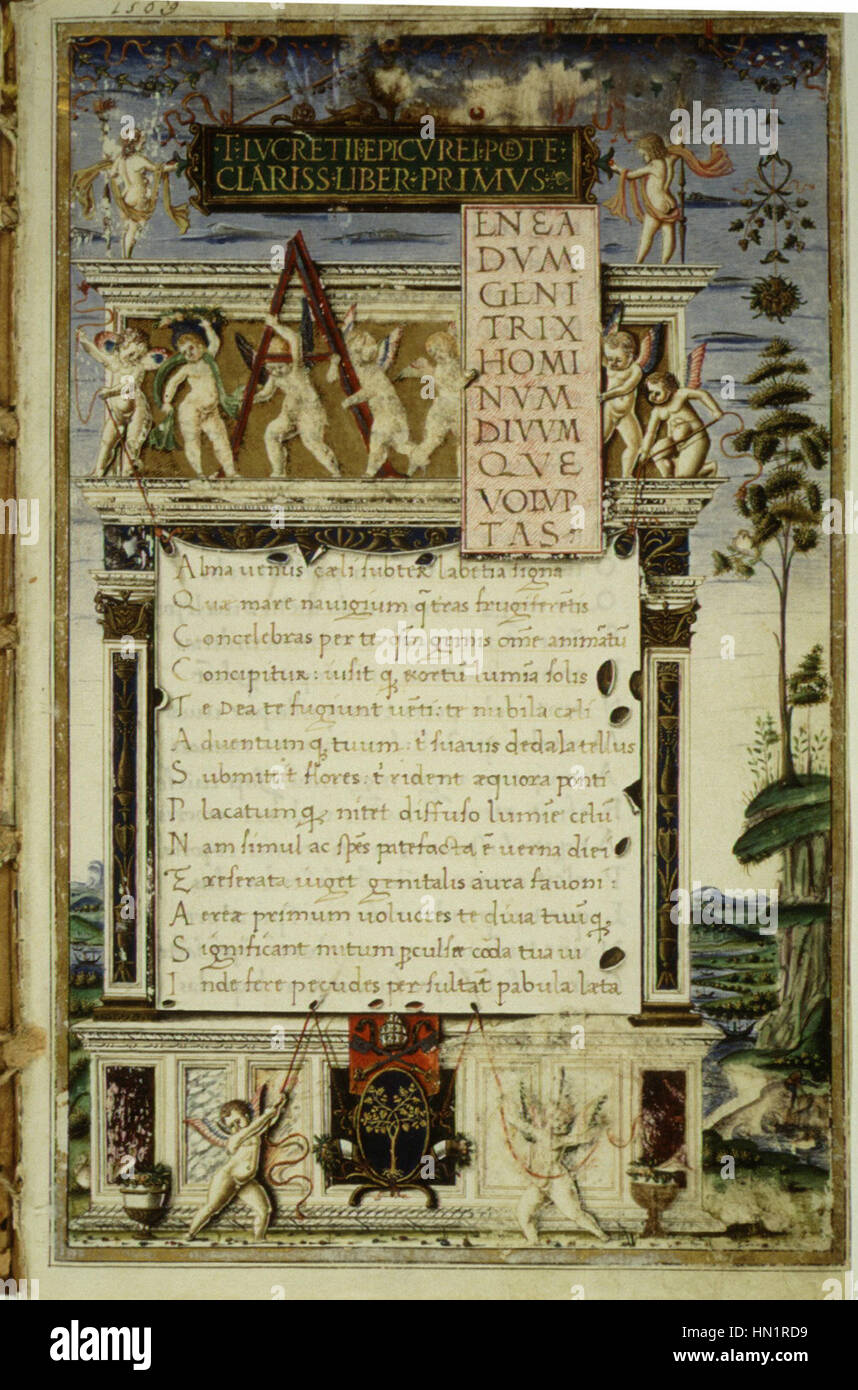 1509
·T·LVCRETII·EPICVREI·POETE·
CLARISS·LIBER·PRIMVS·
A
ENEA
DVM
GENI
TRIX
HOMI
NVM
DIVVM
QVE
VOLVP
TAS
Alma uenus cæli subter labētia signa
Quæ mare nauigium q̄ tras frugiferentis
Concelebras per te qm̄ genus om̄e animātū
Concipitur: uisit q; exortū lumīa solis
Te Dea te fugiunt uēti: te nubila cæli
Aduentum q; tuum: t' suauis dedala tellus
Submitit flores: t' rident æquora ponti
Placatum q; nitet diffuso lumīe celū
Nam simul ac spēs patefacta ē uerna diei
Et reserata uiget genitalis aura fauoni:
Aereæ primum uolucres te diua tuū q;
Significant initum perculsæ corda tua ui
Inde fere pecudes per sultāt pabula læta
alamy stock photo
a
alamy
www.alamy.com
HN1RD9